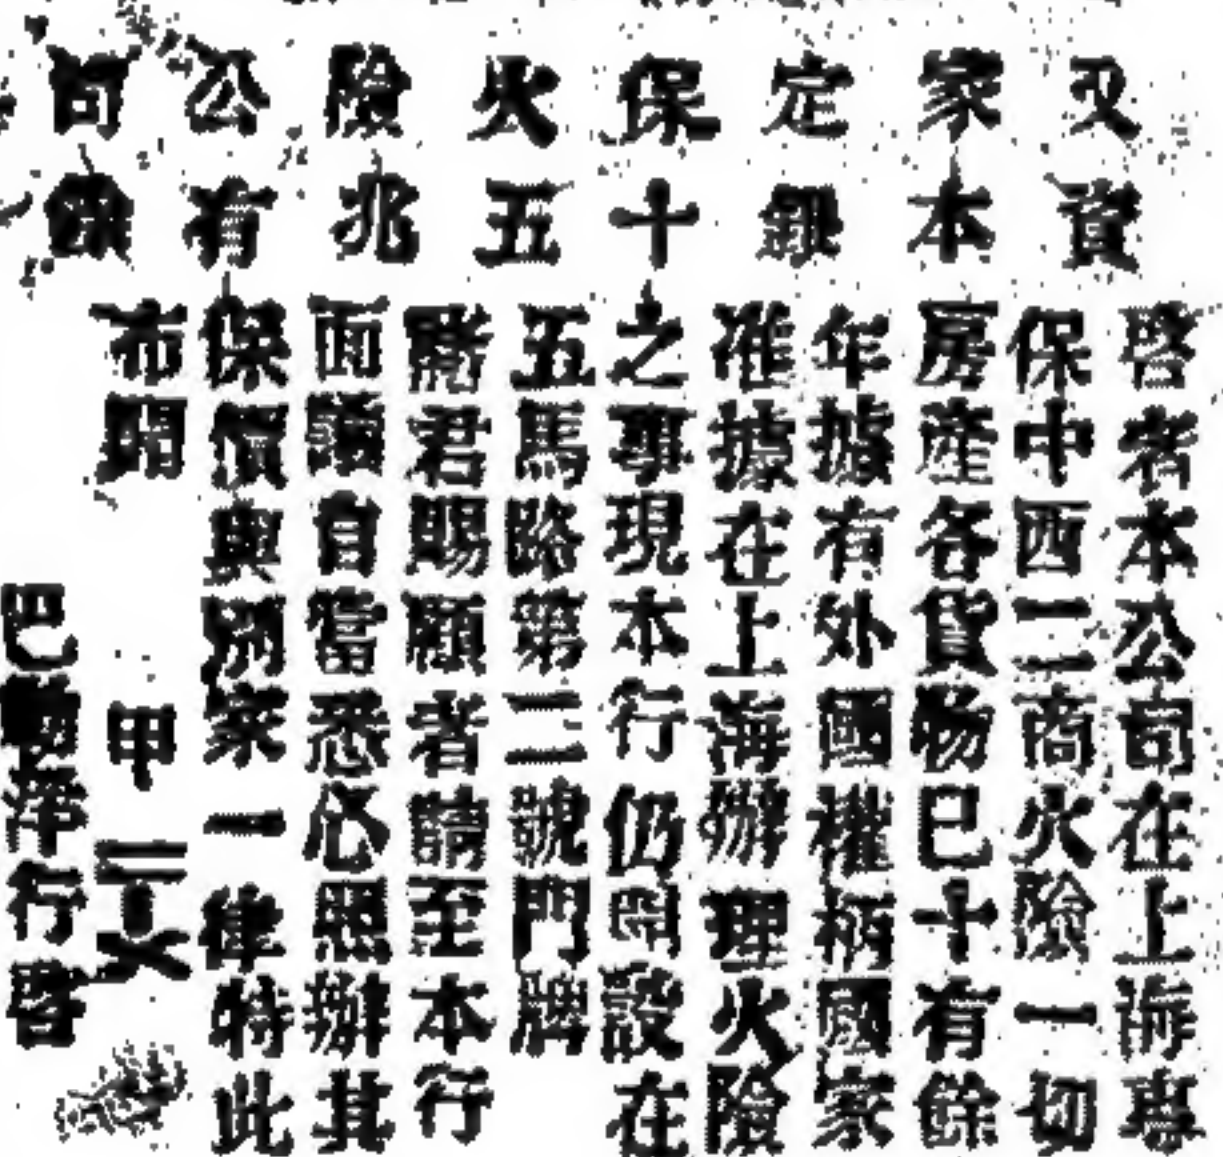 又家定保火險公司
資本銀十五兆有餘
啓者本公司在上海專
保中西二商火險一切
房產各貨物已十有餘
年據有外國權柄國家
准據在上海辦理火險
之事現本行仍開設在
五馬路第二號門牌
君賜顧者請至本行
面議自當悉必照辦其
保價與別家一律特此
布聞
甲
巴勒澤行啓